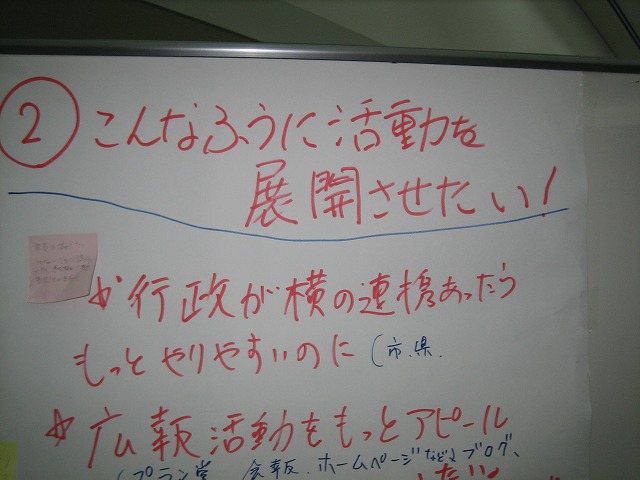 ② こんなふうに活動を
展開させたい!
☆行政が横の連携あったら
もっとやりやすいのに (市.県.
☆広報活動をもっとアピール
会報.ホームページなどよブログ、